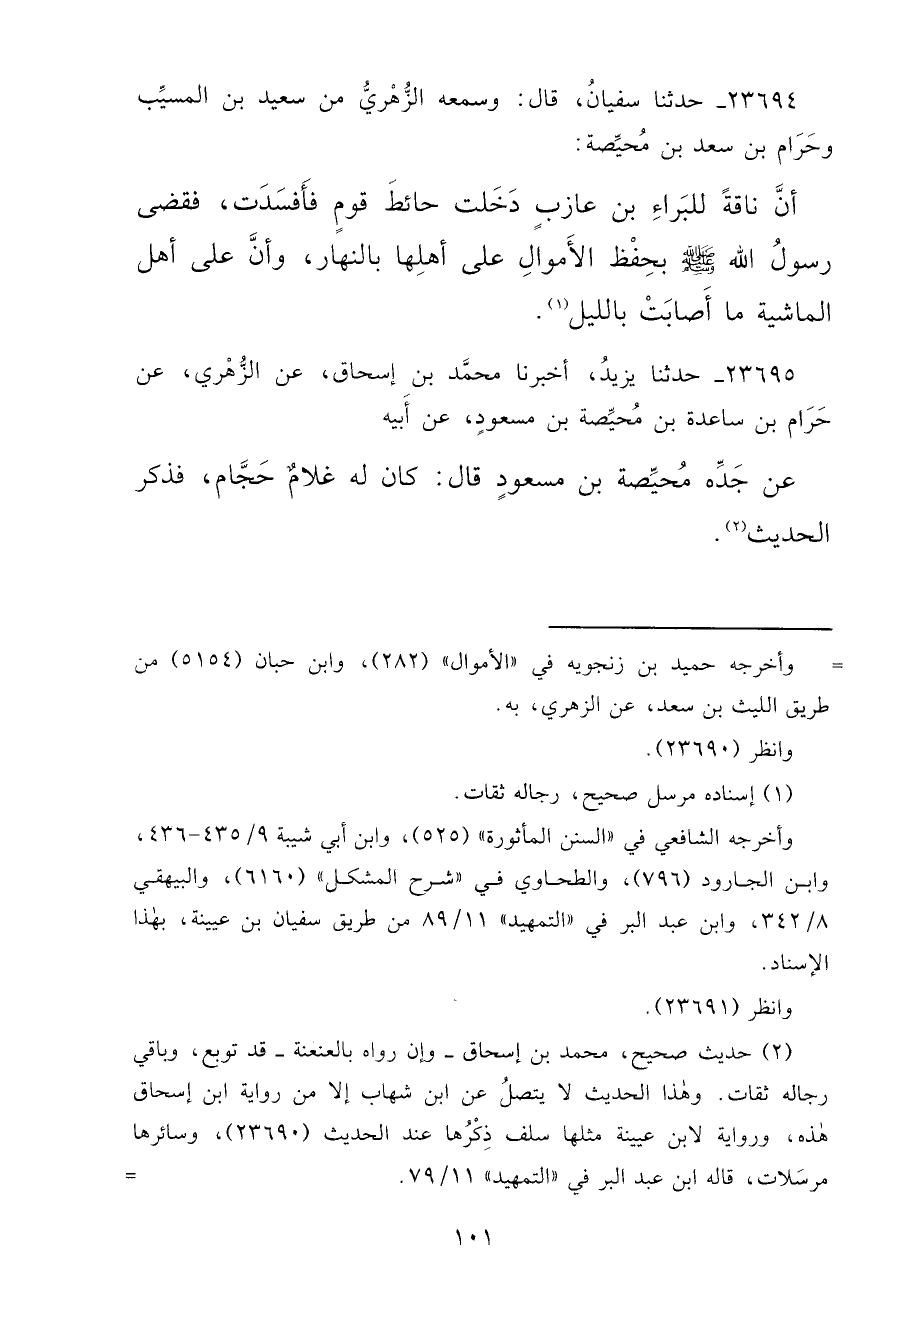 ٢٣٦٩٤ـ حدثنا سفيانُ، قال: وسمعه الزُّهْريُّ من سعيد بن المسيِّب
وحَرَام بن سعد بن مُحيِّصة:
أنَّ ناقةً للبَراءِ بن عازبٍ دَخَلت حائطَ قومٍ فأَفسَدَت، فقضى
رسولُ الله ﷺ بحِفْظ الأَموالِ على أهلِها بالنهار، وأنَّ على أهل
الماشية ما أَصابَتْ بالليل(١).
٢٣٦٩٥ـ حدثنا يزيدُ، أخبرنا محمَّد بن إسحاق، عن الزُّهْري، عن
حَرَام بن ساعدة بن مُحيِّصة بن مسعودٍ، عن أَبيه
عن جَدِّه مُحيِّصة بن مسعودٍ قال: كان له غلامٌ حَجَّام، فذكر
الحديث(٢).
= وأخرجه حميد بن زنجويه في «الأموال» (٢٨٢)، وابن حبان (٥١٥٤) من
طريق الليث بن سعد، عن الزهري، به.
وانظر (٢٣٦٩٠).
(١) إسناده مرسل صحيح، رجاله ثقات.
وأخرجه الشافعي في «السنن المأثورة» (٥٢٥)، وابن أبي شيبة ٩/ ٤٣٥-٤٣٦،
وابن الجارود (٧٩٦)، والطحاوي في «شرح المشكل» (٦١٦٠)، والبيهقي
٨/ ٣٤٢، وابن عبد البر في «التمهيد» ١١/ ٨٩ من طريق سفيان بن عيينة، بهٰذا
الإسناد.
وانظر (٢٣٦٩١).
(٢) حديث صحيح، محمد بن إسحاق ـ وإن رواه بالعنعنة ـ قد توبع، وباقي
رجاله ثقات. وهٰذا الحديث لا يتصلُ عن ابن شهاب إلا من رواية ابن إسحاق
هٰذه، ورواية لابن عيينة مثلها سلف ذِكْرُها عند الحديث (٢٣٦٩٠)، وسائرها
مرسَلات، قاله ابن عبد البر في «التمهيد» ١١/ ٧٩. =
١٠١